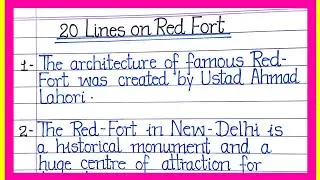 20 Lines on Red Fort
1- The architecture of famous Red-
Fort was created by Ustad Ahmad
Lahori.
2- The Red-Fort in New-Delhi is
a historical monument and a
huge centre of attraction for